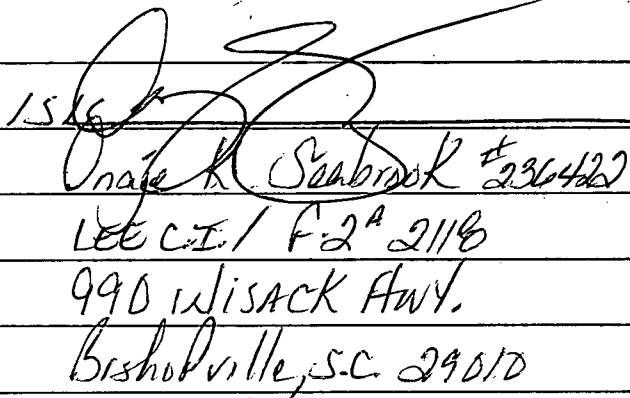 /s/
K. Seabrook #236422
LEE C.I. / F-2A 2118
990 WISACK HWY.
Bishopville, S.C. 29010